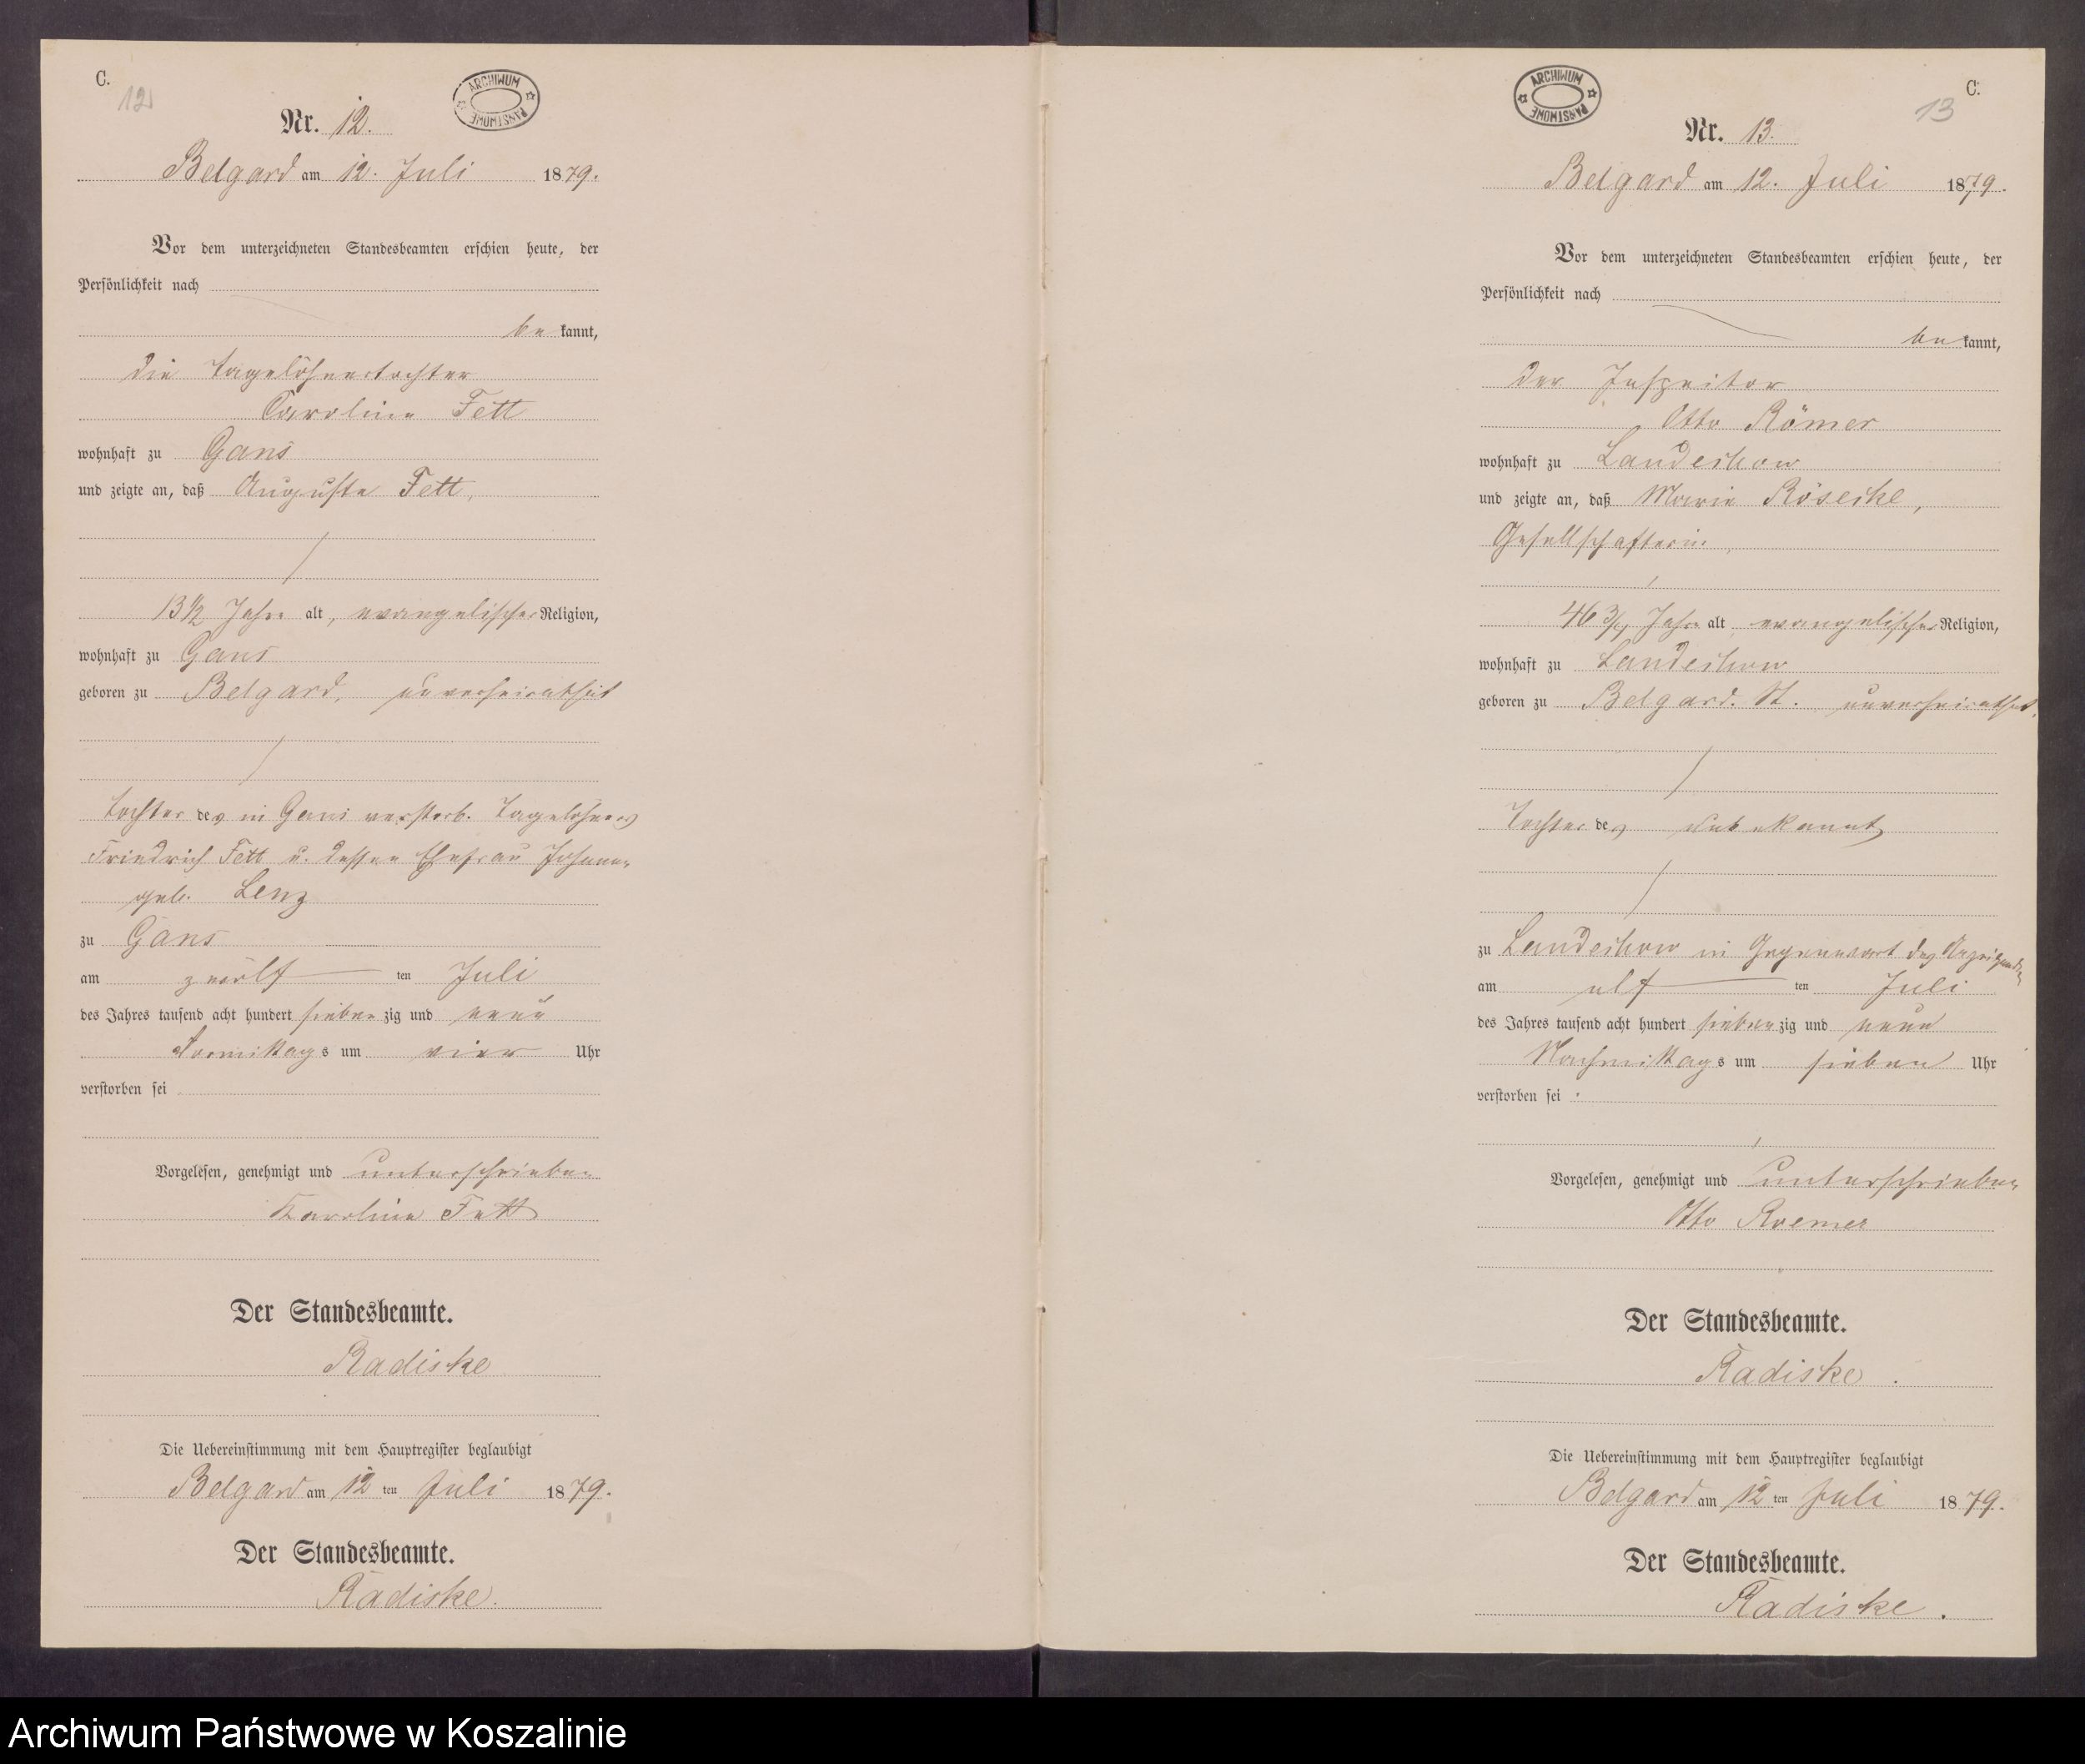 C.
12
ARCHIWUM PAŃSTWOWE
Nr. 12.
Belgard am 12. Juli 1879.
Vor dem unterzeichneten Standesbeamten erschien heute, der
Persönlichkeit nach
be kannt,
die Tagelöhnertochter
Caroline Fett
wohnhaft zu Gans
und zeigte an, daß Auguste Fett,
13 1/2 Jahre alt, evangelischer Religion,
wohnhaft zu Gans
geboren zu Belgard, unverheirathet
Tochter des in Gans verstorb. Tagelöhners
Friedrich Fett u. dessen Ehefrau Johanne
geb. Lenz
zu Gans
am zwölf ten Juli
des Jahres tausend acht hundert sieben zig und neun
Vormittags um vier Uhr
verstorben sei
Vorgelesen, genehmigt und unterschrieben
Karoline Fett
Der Standesbeamte.
Radiske
Die Uebereinstimmung mit dem Hauptregister beglaubigt
Belgard am 12 ten Juli 1879.
Der Standesbeamte.
Radiske.
C.
13
ARCHIWUM PAŃSTWOWE
Nr. 13.
Belgard am 12. Juli 1879.
Vor dem unterzeichneten Standesbeamten erschien heute, der
Persönlichkeit nach
be kannt,
der Inspector
Otto Römer
wohnhaft zu Landechow
und zeigte an, daß Marie Rösecke,
Gesellschafterin,
46 3/4 Jahre alt evangelischer Religion,
wohnhaft zu Landechow
geboren zu Belgard. St. unverheirathet.
Tochter des unbekannt
zu Landechow in Gegenwart des Anzeigenden
am elf ten Juli
des Jahres tausend acht hundert sieben zig und neun
Nachmittags um sieben Uhr
verstorben sei.
Vorgelesen, genehmigt und unterschrieben
Otto Roemer
Der Standesbeamte.
Radiske.
Die Uebereinstimmung mit dem Hauptregister beglaubigt
Belgard am 12 ten Juli 1879.
Der Standesbeamte.
Radiske.
Archiwum Państwowe w Koszalinie